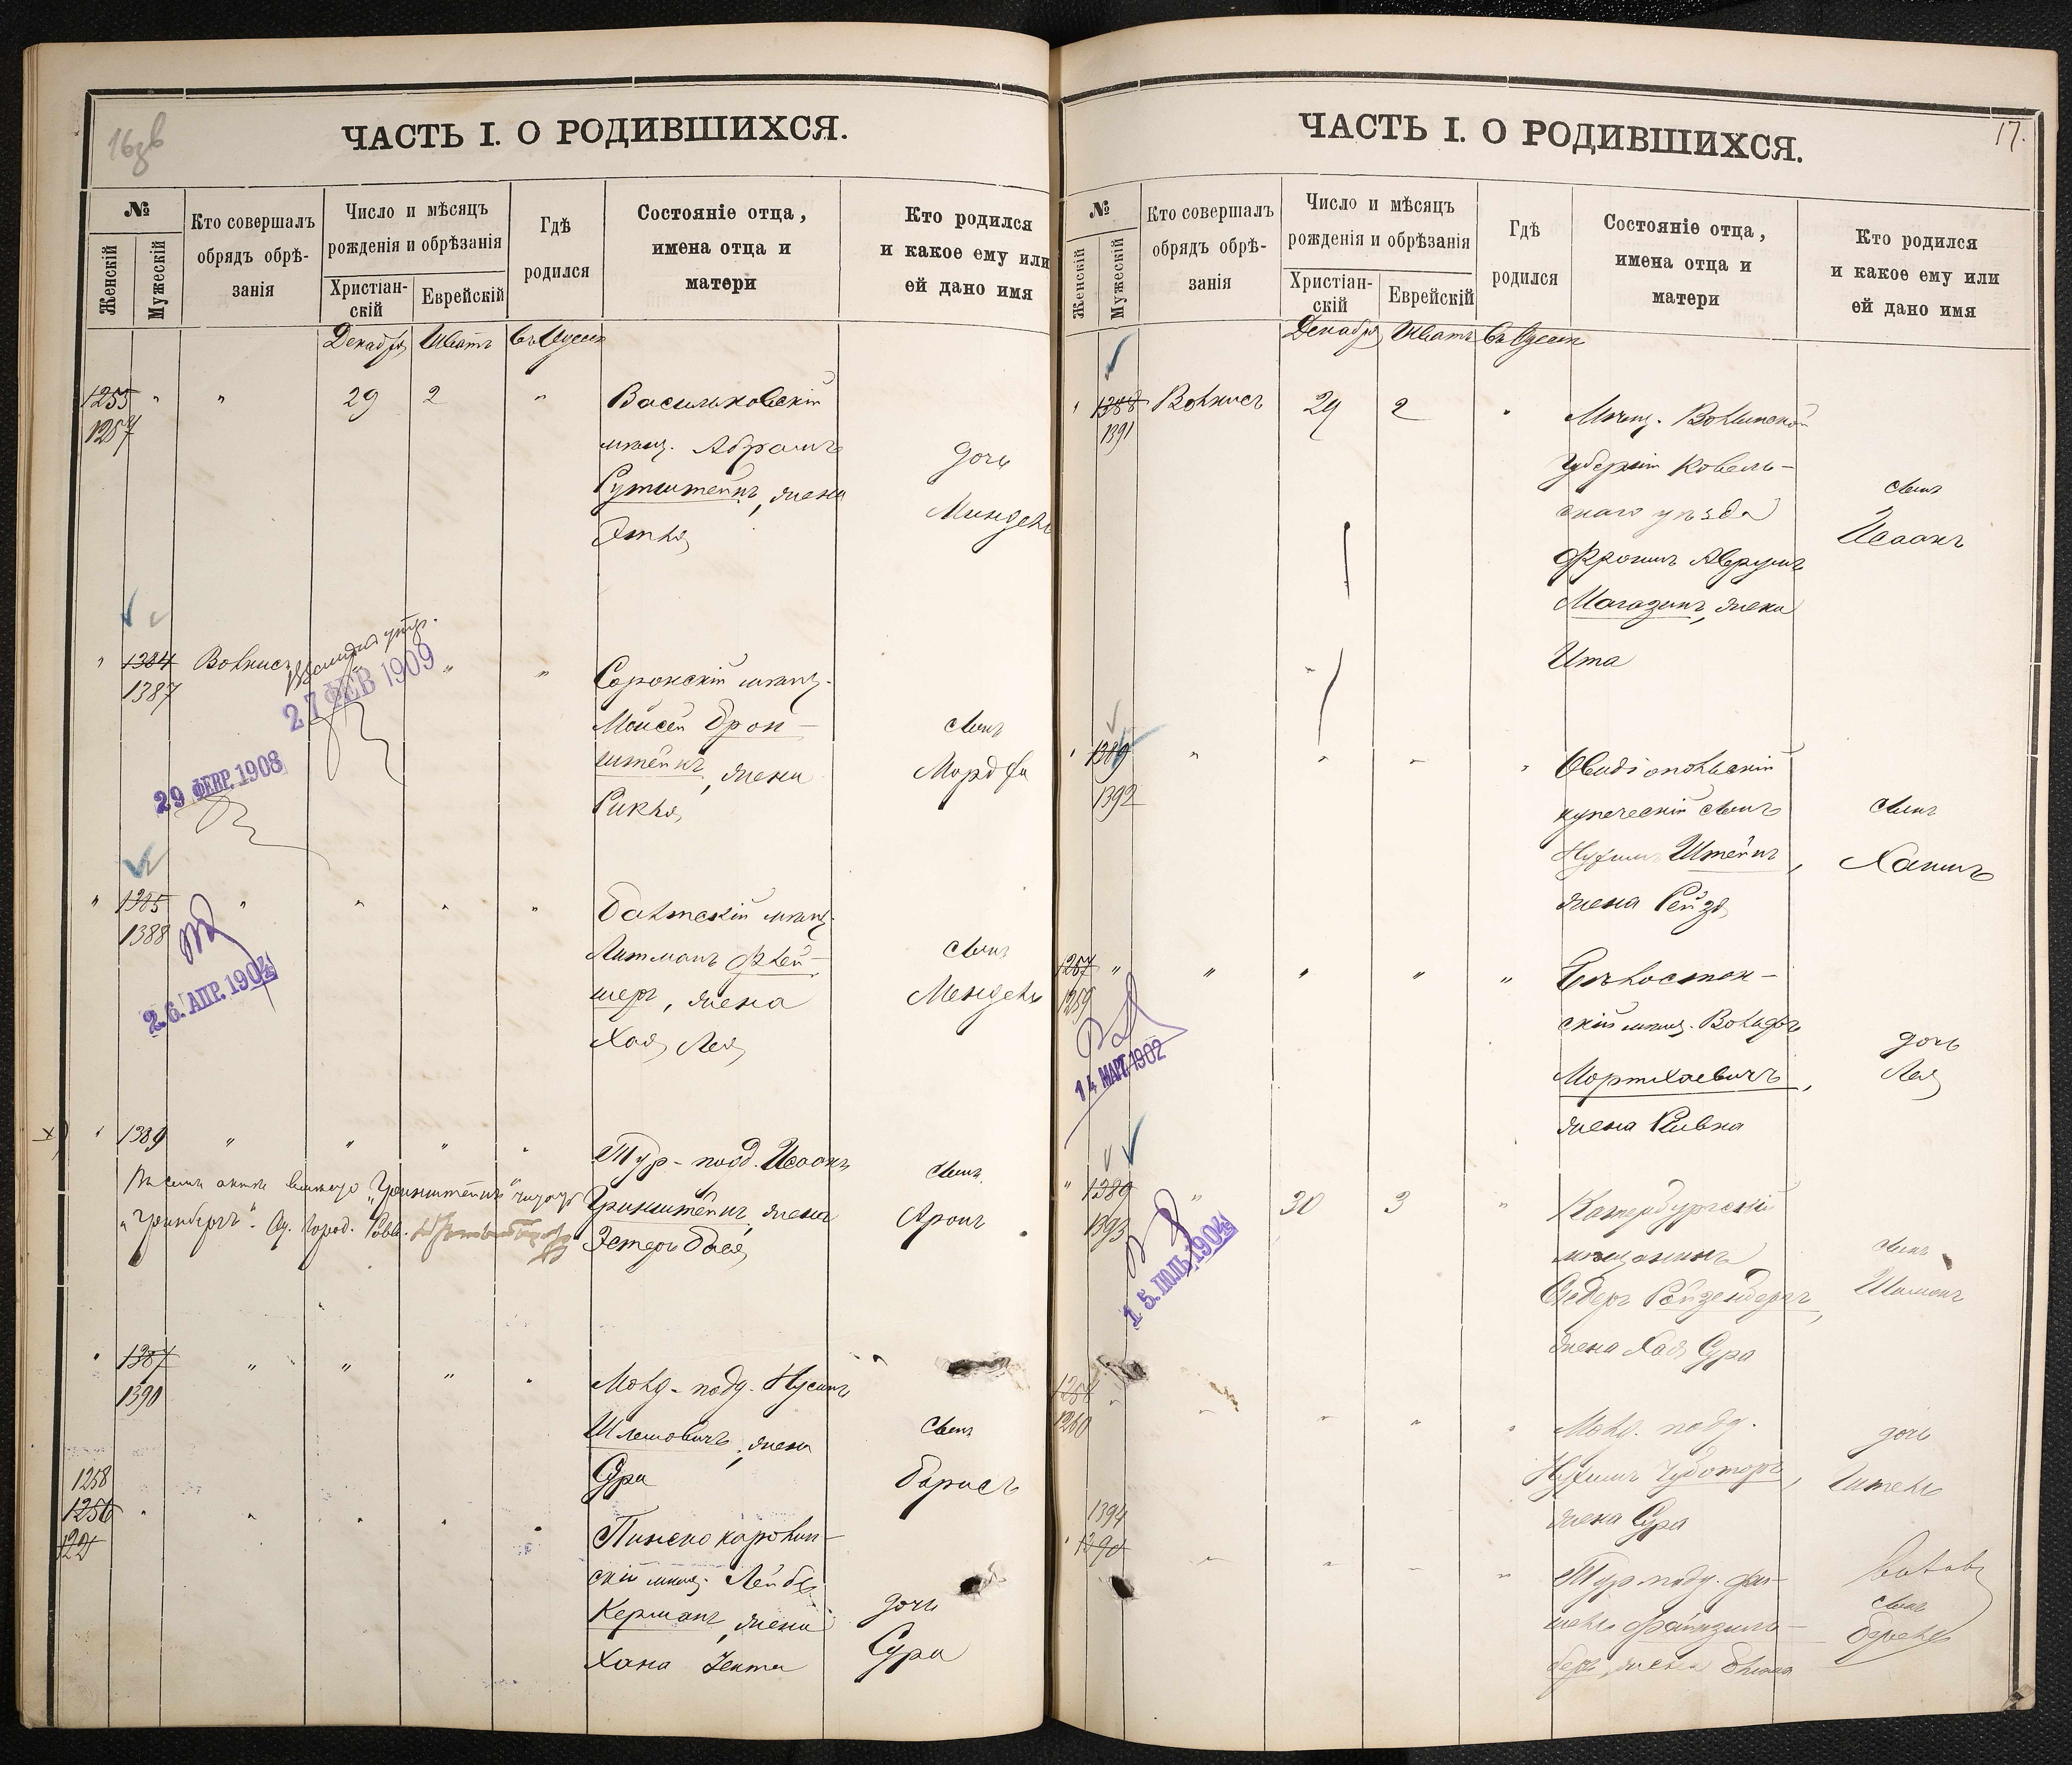 16зв
ЧАСТЬ I. О РОДИВШИХСЯ.
№
Женскій
Мужескій
Кто совершалъ
обрядъ обрѣ-
занія
Число и мѣсяцъ
рожденія и обрѣзанія
Христіан-
скій
Еврейскій
Гдѣ
родился
Состояніе отца,
имена отца и
матери
Кто родился
и какое ему или
ей дано имя
Декабря
Шватъ
Въ Одессѣ
1255 " " 29 2 "
1257
Васильковскій
мѣщ. Абрамъ
Гутштейнъ, жена
Этля
дочь
Миндель
" 1384
1387
29 ФЕВР. 1908
27 ФЕВ 1909
Сорокскій мѣщ.
Моисей Брон-
штейнъ, жена
Рикля
сынъ
Мордко
" 1385 " " " "
1388
26. АПР. 1904
Балтскій мѣщ.
Литманъ Флей-
шеръ, жена
Хая Лея
сынъ
Мендель
" 1389 " " " "
Тур-подд. Исаакъ
Гринштейнъ, жена
Эстеръ Бася
сынъ
Аронъ
Въ семъ актѣ вмѣсто „Гринштейнъ" читать
„Гринбергъ". Од. Город. Равв.
" 1387 " " " "
1390
Молд-подд. Нусинъ
Шлемовичъ, жена
Сура
сынъ
Борисъ
1258
1256 " " " " "
скій мѣщ. Лейбъ
Керманъ, жена
Хана Гентя
дочь
Сура
17.
ЧАСТЬ I. О РОДИВШИХСЯ.
№
Женскій
Мужескій
Кто совершалъ
обрядъ обрѣ-
занія
Число и мѣсяцъ
рожденія и обрѣзанія
Христіан-
скій
Еврейскій
Гдѣ
родился
Состояніе отца,
имена отца и
матери
Кто родился
и какое ему или
ей дано имя
Декабря
Шватъ
Въ Одессѣ
" 1388 29 2 "
1391
Мѣщ. Волынской
губерніи Ковель-
скаго уѣзда
Фроимъ Аврумъ
Магазинъ, жена
Ита
сынъ
Исаакъ
" 1389 " " " "
1392
Овидіопольскій
купеческій сынъ
Нухимъ Штейнъ,
жена Рейзя
сынъ
Хаимъ
1257 " " " " "
1259
14 МАРТ. 1902
Бѣлосток-
скій мѣщ. Вольфъ
Мортхаевичъ,
жена Ривка
дочь
Лея
" 1389 " 30 3 "
1393
15. ІЮЛЬ 1904
Катербургскій
мѣщанинъ
жена Хая Сура
сынъ
Шимонъ
1258 " " " " "
1260
Молд. подд.
Нухимъ Чуботаръ,
жена Сура
дочь
Гитель
1394
" 1390 " " " "
Тур подд.
сынъ